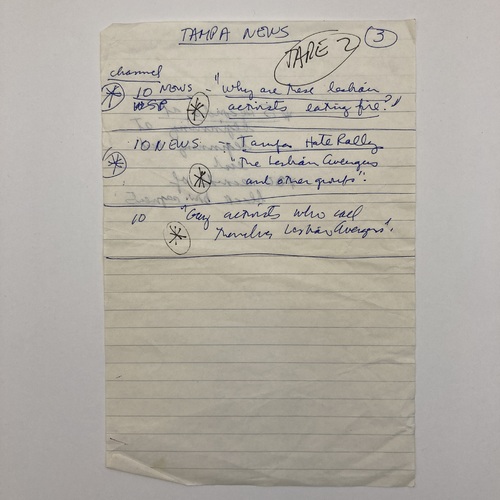 TAMPA NEWS
TAPE 2
3
channel
10 NEWS "Why are these lesbian
WSP activists eating fire?"
10 NEWS Tampa Hate Rally
"The Lesbian Avengers
and other groups".
10 "Gay activists who call
themselves Lesbian Avengers".